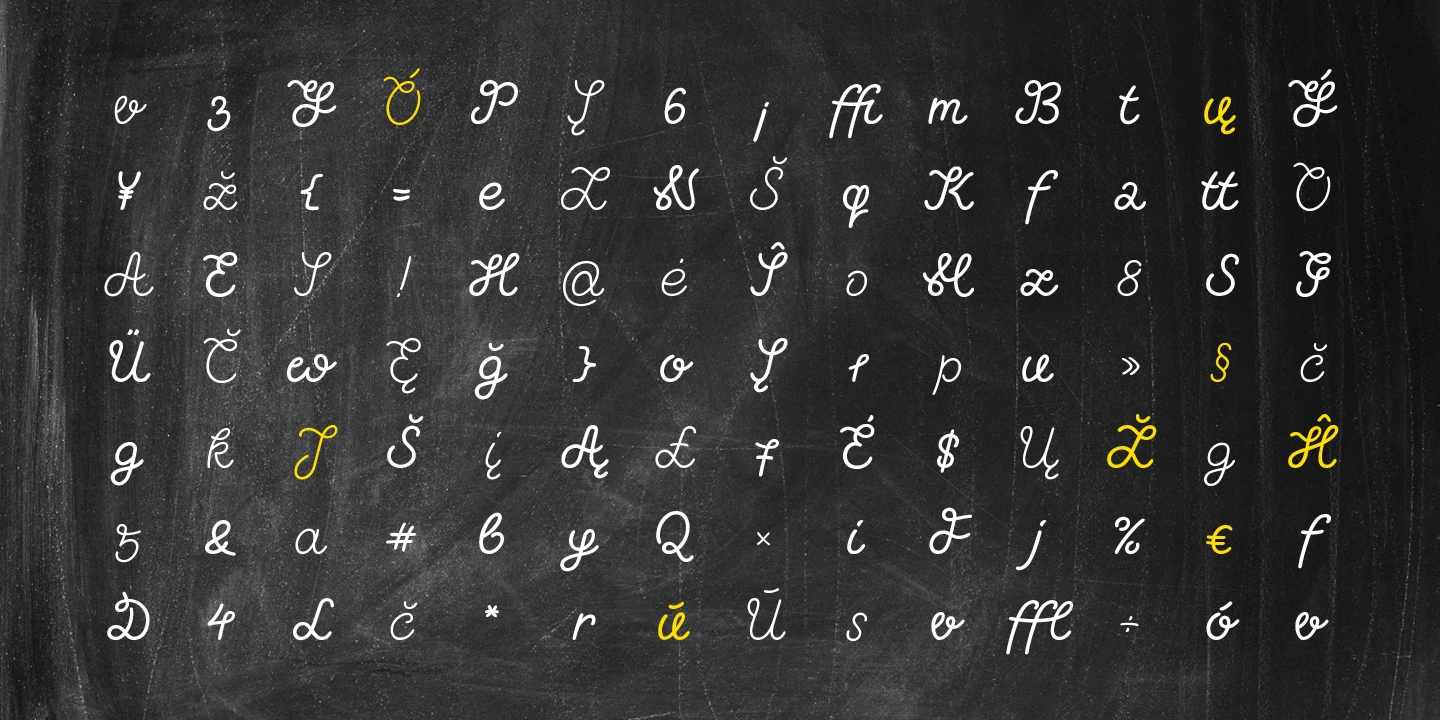 v 3 Y Ó P Į 6 j ffi m B t ų Ý
¥ ž { = e Z N Š φ K f a tt O
A E I ! H @ ė Î o M z 8 S
Ü Č w Ę ğ } o Į p u » § č
g k J Š į Ą £ É $ Ų Ž g Ĥ
5 & a # b y Q × i F j % € f
D 4 L č * r ū Ū s v ffl ÷ ó v